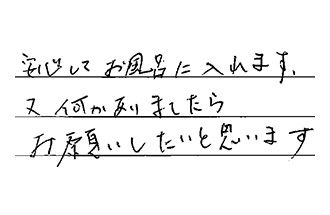 安心して お風呂に入れます、
又 何かありましたら
お願いしたいと思います